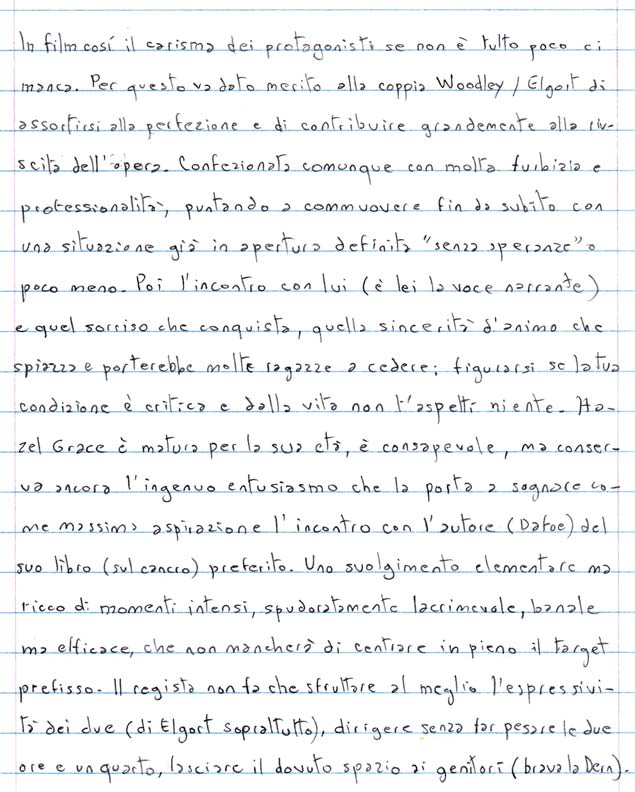 In film così il carisma dei protagonisti se non è tutto poco ci
manca. Per questo va dato merito alla coppia Woodley / Elgort di
assortirsi alla perfezione e di contribuire grandemente alla riu-
scita dell'opera. Confezionata comunque con molta furbizia e
professionalità, puntando a commuovere fin da subito con
una situazione già in apertura definita "senza speranze" o
poco meno. Poi l'incontro con lui (è lei la voce narrante)
e quel sorriso che conquista, quella sincerità d'animo che
spiazza e porterebbe molte ragazze a cedere; figurarsi se la tua
condizione è critica e dalla vita non t'aspetti niente. Ha-
zel Grace è matura per la sua età, è consapevole, ma conser-
va ancora l'ingenuo entusiasmo che la porta a sognare co-
me massima aspirazione l'incontro con l'autore (Dafoe) del
suo libro (sul cancro) preferito. Uno svolgimento elementare ma
ricco di momenti intensi, spudoratamente lacrimevole, banale
ma efficace, che non mancherà di centrare in pieno il target
prefisso. Il regista non fa che sfruttare al meglio l'espressivi-
tà dei due (di Elgort soprattutto), dirigere senza far pesare le due
ore e un quarto, lasciare il dovuto spazio ai genitori (brava la Dern).